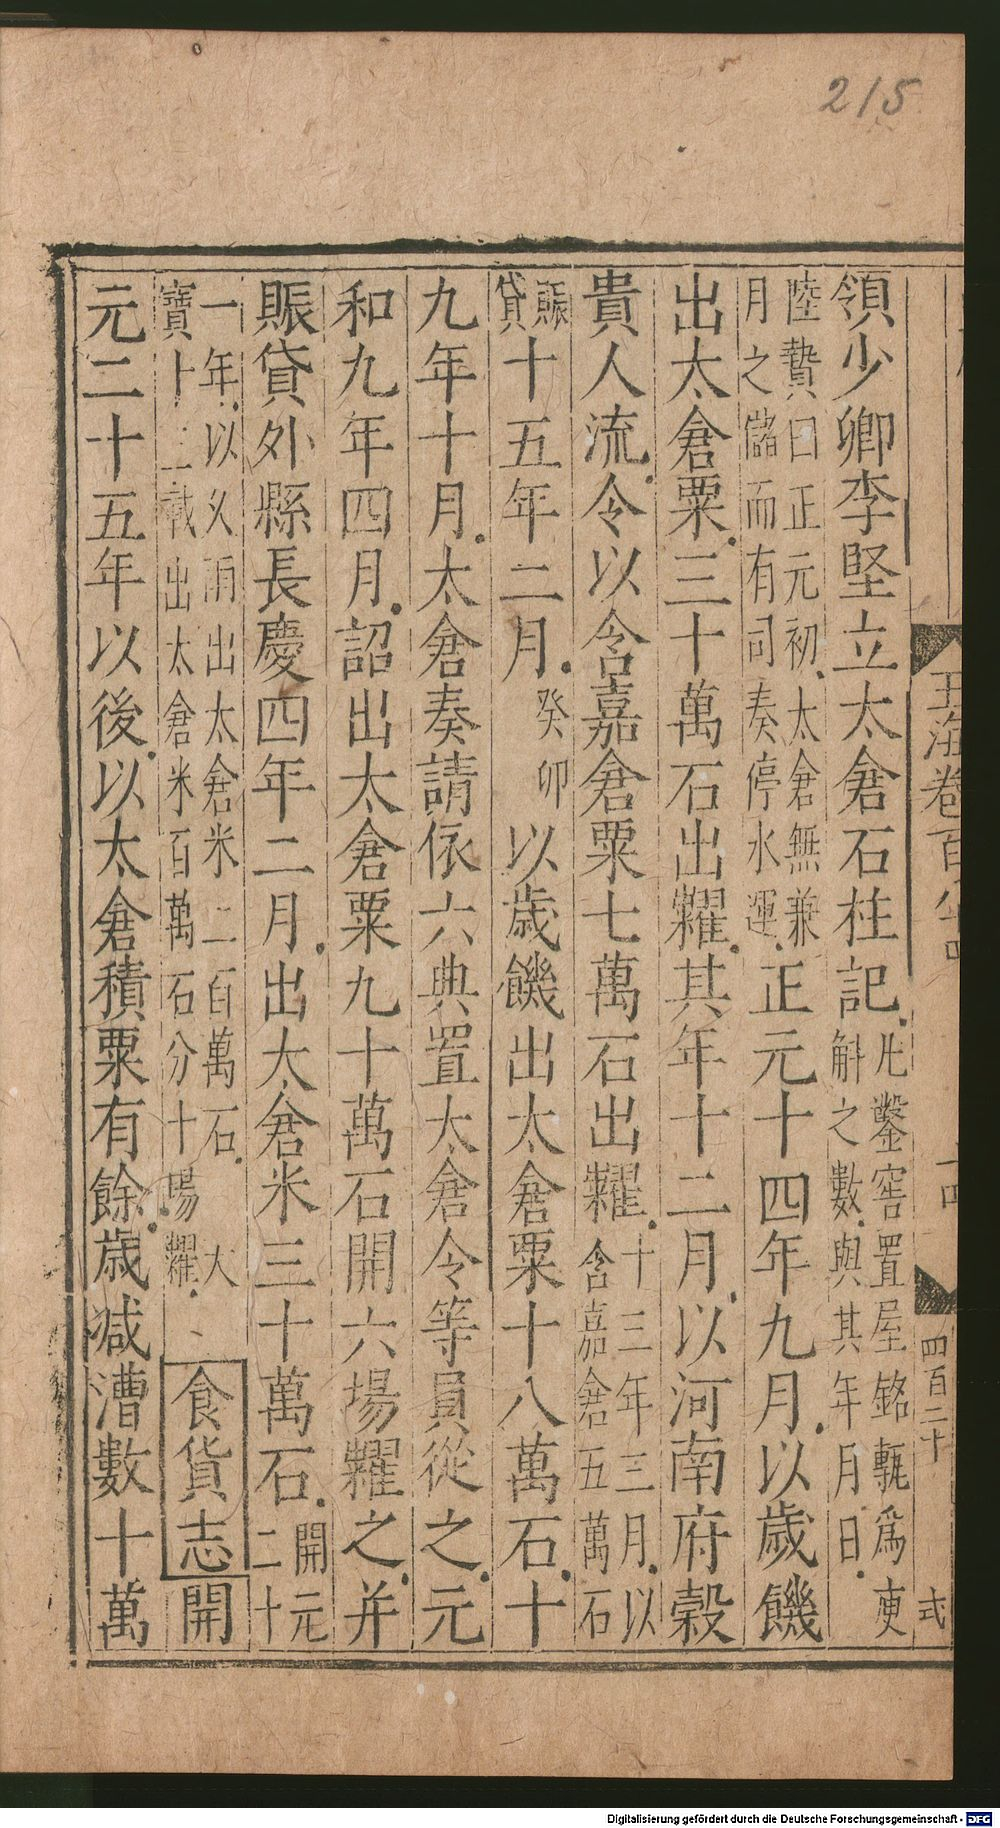 215
玉海卷百八十四
十四
四百二十
式
領少卿李堅立太倉石柱記凡鑿窖置屋銘甎爲庾
斛之數與其年月日
陸贄曰正元初太倉無兼
月之儲而有司奏停水運正元十四年九月以歲饑
出太倉粟三十萬石出糶其年十二月以河南府穀
貴人流令以含嘉倉粟七萬石出糶十三年三月以
含嘉倉五萬石
賑
貸十五年二月癸卯以歲饑出太倉粟十八萬石十
九年十月太倉奏請依六典置太倉令等員從之元
和九年四月詔出太倉粟九十萬石開六場糶之并
賑貸外縣長慶四年二月出太倉米三十萬石開元
二十
一年以久雨出太倉米二百萬石天
寶十二載出太倉米百萬石分十場糶食貨志開
元二十五年以後以太倉積粟有餘歲減漕數十萬
Digitalisierung gefördert durch die Deutsche Forschungsgemeinschaft - DFG